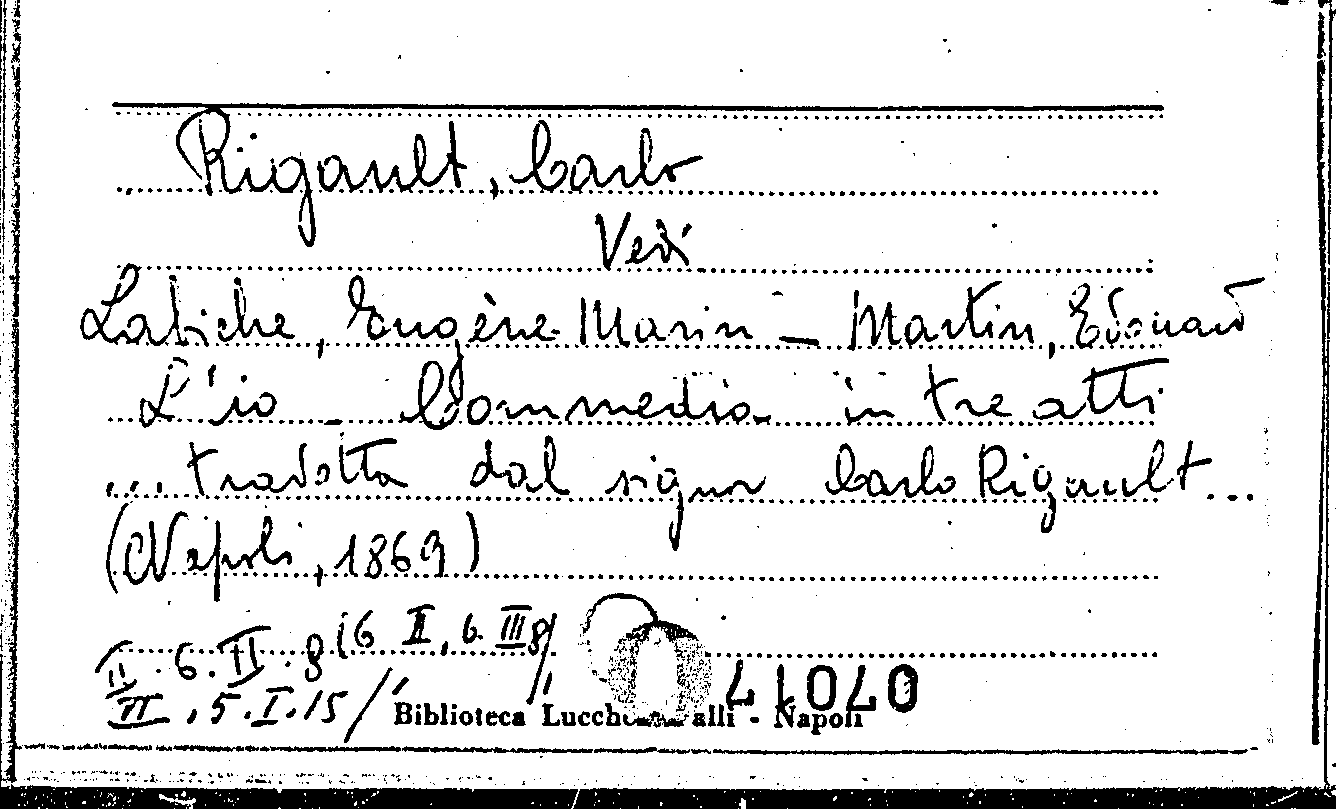 Rigault, Carlo
Vedi
Labiche, Eugène-Marin - Martin, Edouard
L'io - Commedia in tre atti
... tradotta dal signor Carlo Rigault...
(Napoli, 1869)
6.VI.8 (6 II, 6. III 8)
VI.5.I.15/
Biblioteca Lucchesi Palli - Napoli